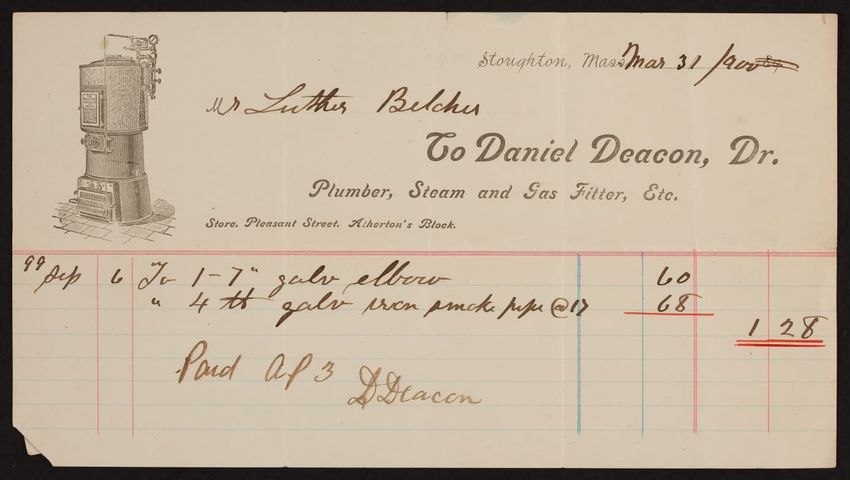 Stoughton, Mass. Mar 31 1900
Mr Luther Belcher
To Daniel Deacon, Dr.
Plumber, Steam and Gas Fitter, Etc.
Store, Pleasant Street, Atherton's Block.
99 Sep 6 To 1-7" galv elbow 60
" 4 lb galv iron smoke pipe @17 68
1 28
Paid Ap 3
D Deacon